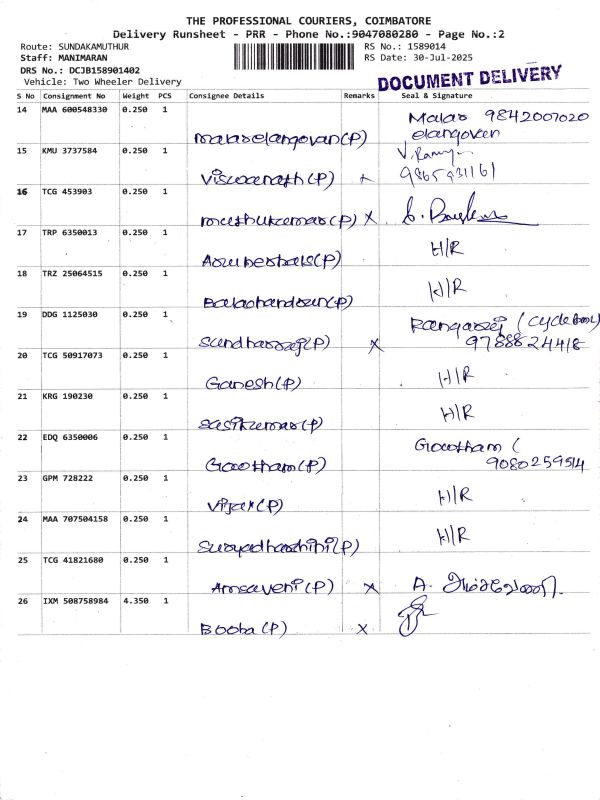 THE PROFESSIONAL COURIERS, COIMBATORE
Delivery Runsheet - PRR - Phone No.:9047080280 - Page No.:2
Route: SUNDAKAMUTHUR RS No.: 1589014
Staff: MANIMARAN RS Date: 30-Jul-2025
DRS No.: DCJB158901402
Vehicle: Two Wheeler Delivery
DOCUMENT DELIVERY
S No Consignment No Weight PCS Consignee Details Remarks Seal & Signature
14 MAA 600548330 0.250 1
Malar 9842007020
elangovan
malarelangovan(P)
15 KMU 3737584 0.250 1
V. Ramy
viswanath(P) x
16 TCG 453903 0.250 1
muthukumar(P) x
17 TRP 6350013 0.250 1
H/R
18 TRZ 25064515 0.250 1
H/R
Balachandran(P)
19 DDG 1125030 0.250 1
Rangaraj (cycle
sundharraj(P) x 9788824418
20 TCG 50917073 0.250 1
H/R
Ganesh(P)
21 KRG 190230 0.250 1
H/R
sasikumar(P)
22 EDQ 6350006 0.250 1
Gowtham (
Gowtham(P) 9080259514
23 GPM 728222 0.250 1
H/R
Vijay(P)
24 MAA 707504158 0.250 1
H/R
Suryadharshini(P)
25 TCG 41821680 0.250 1
Amsaveni(P) x A. அம்சவேணி.
26 IXM 508758984 4.350 1
Booba(P) x